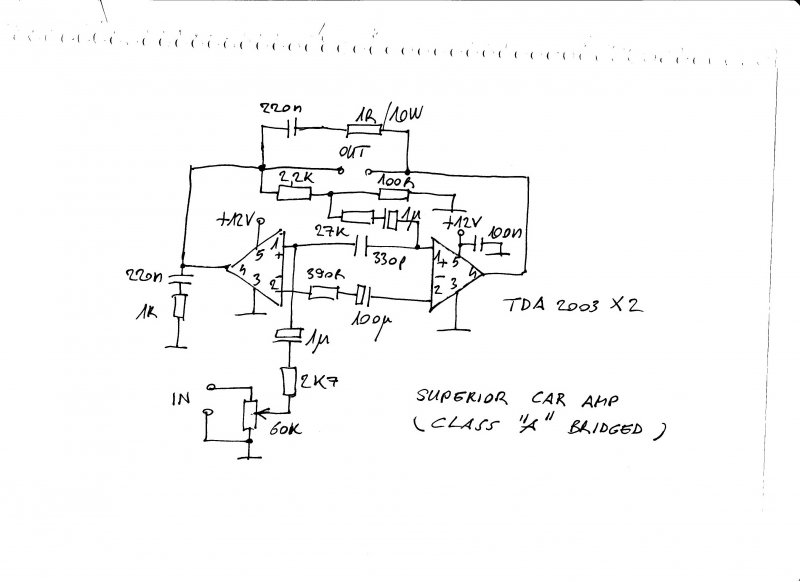 220n
1R/10W
OUT
2,2K
100R
27K
1µ
+12V
+12V
100n
5
1
+
4
330p
1+
5
4
220n
3
2
-
390R
100µ
-
2
3
TDA 2003 X2
1R
1µ
2K7
IN
60K
SUPERIOR CAR AMP
(CLASS "A" BRIDGED)